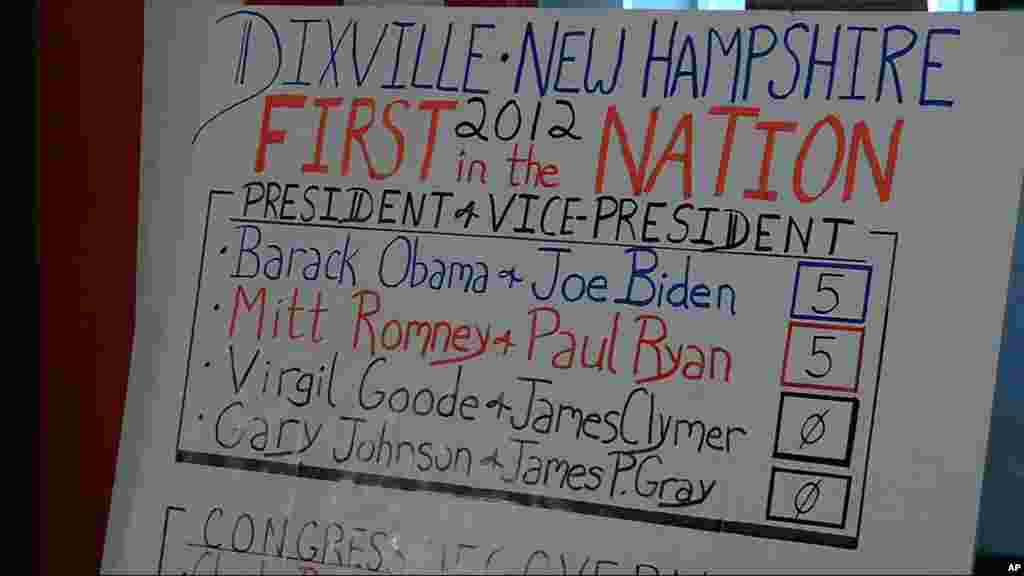 DIXVILLE · NEW HAMPSHIRE
FIRST 2012 in the NATION
PRESIDENT & VICE-PRESIDENT
· Barack Obama & Joe Biden 5
· Mitt Romney & Paul Ryan 5
· Virgil Goode & James Clymer Ø
· Gary Johnson & James P. Gray Ø
CONGRESS
AP